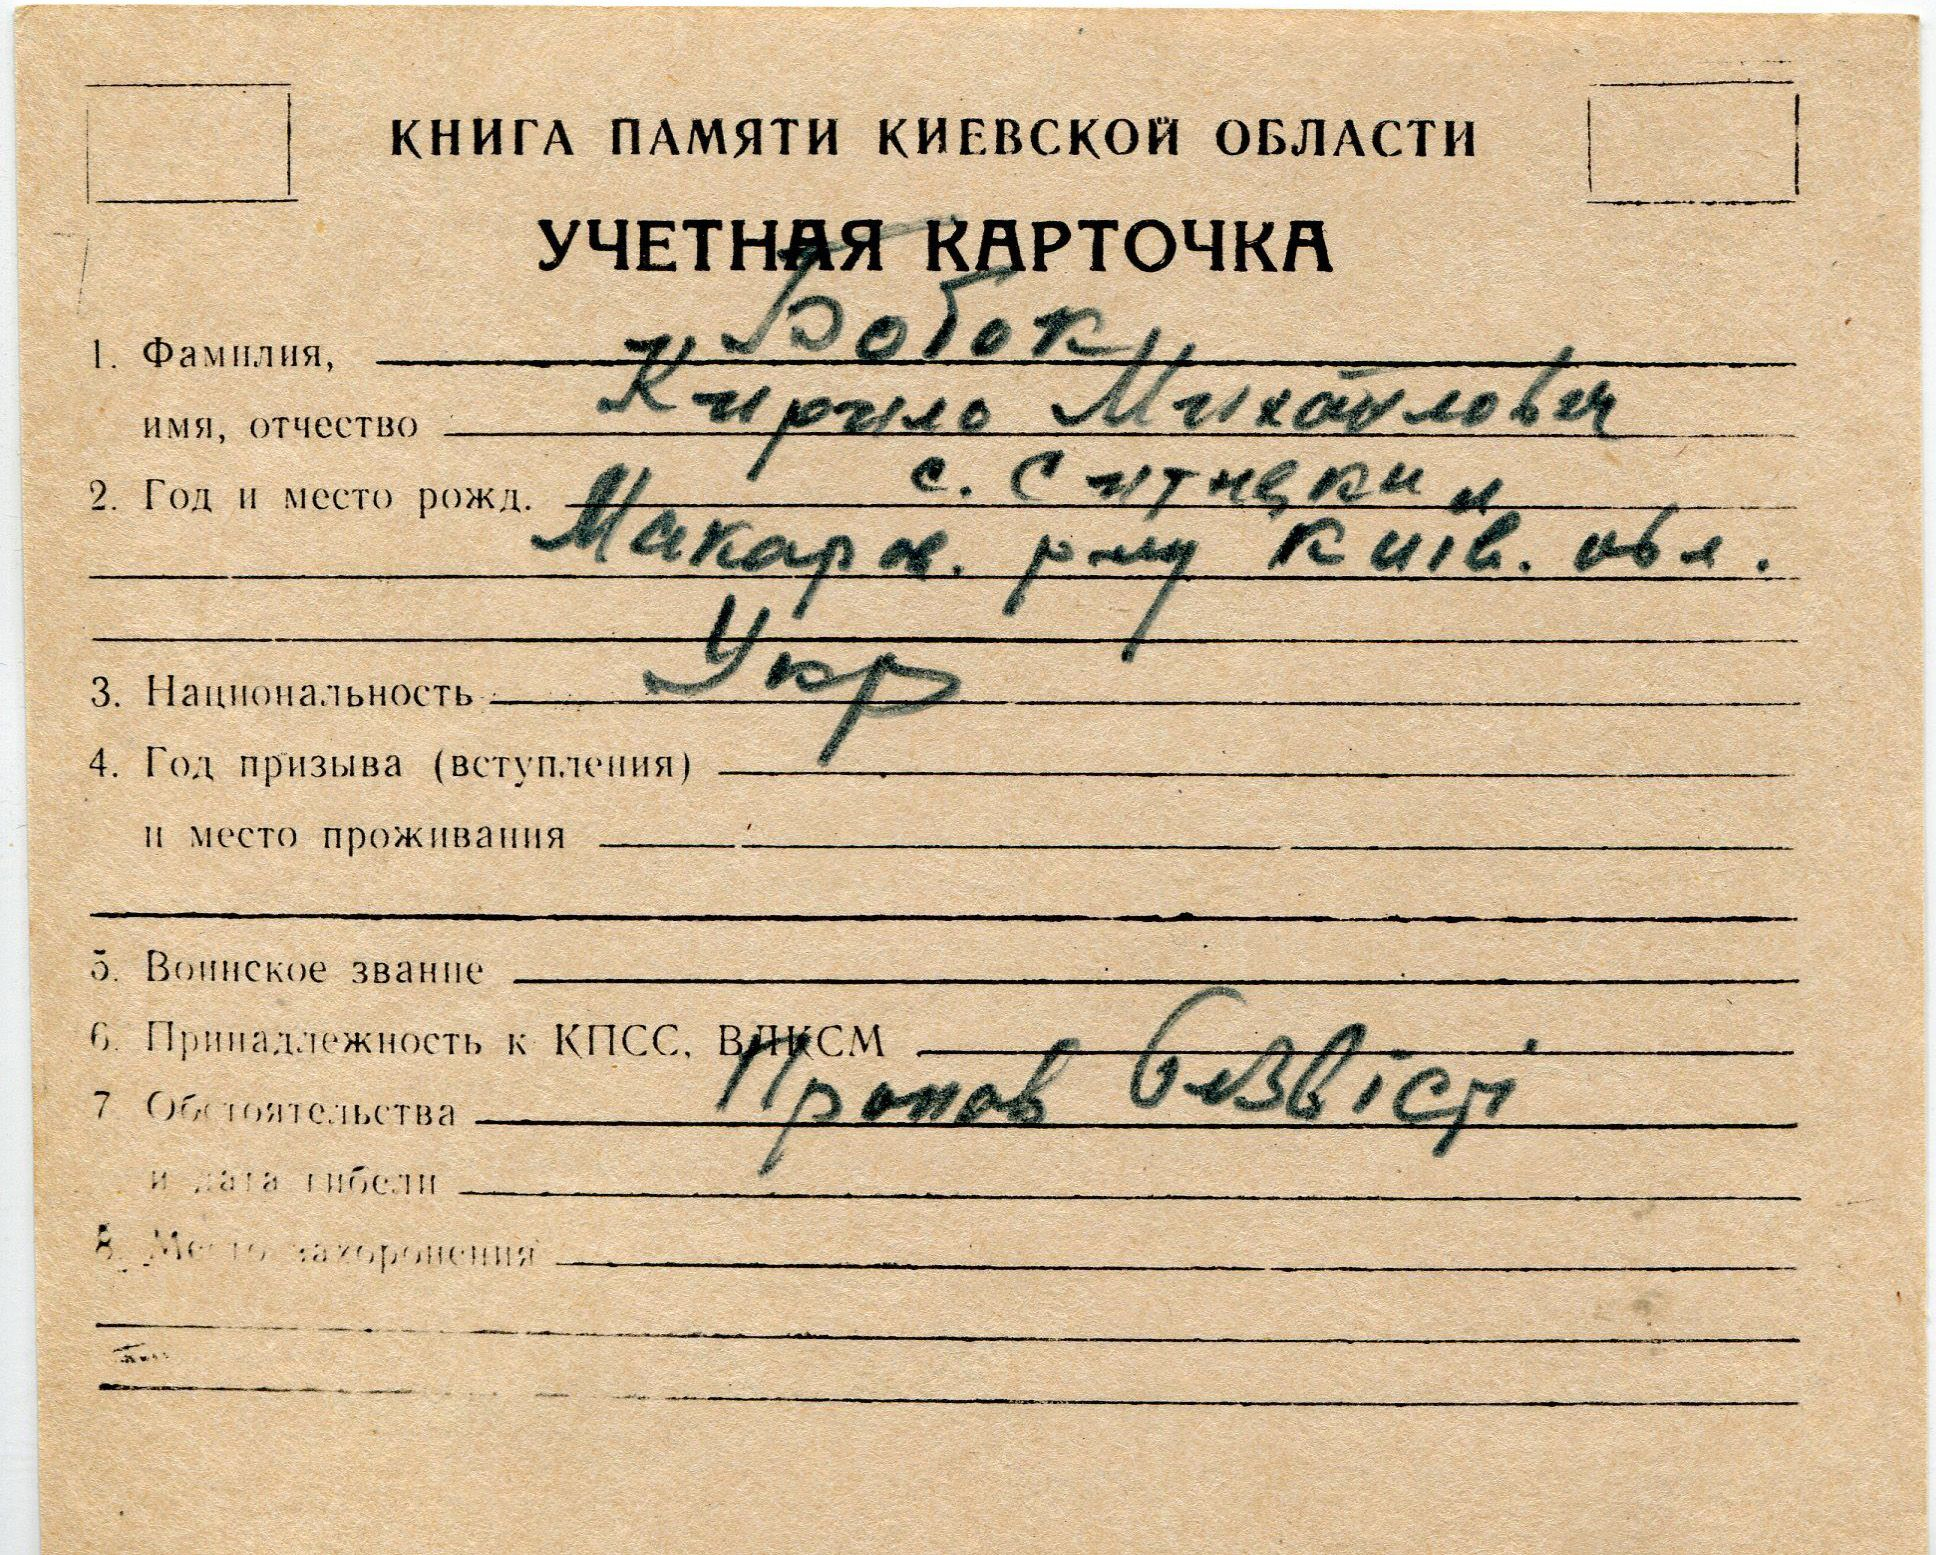 КНИГА ПАМЯТИ КИЕВСКОЙ ОБЛАСТИ
УЧЕТНАЯ КАРТОЧКА
1. Фамилия, Бобок
имя, отчество Кирило Михайлович
2. Год и место рожд. с.
Макаров. р-ну Київ. обл.
3. Национальность Укр
4. Год призыва (вступления)
и место проживания
5. Воинское звание
6. Принадлежность к КПСС, ВЛКСМ
7 Обстоятельства Пропав безвісті
и дата гибели
8. Место захоронения